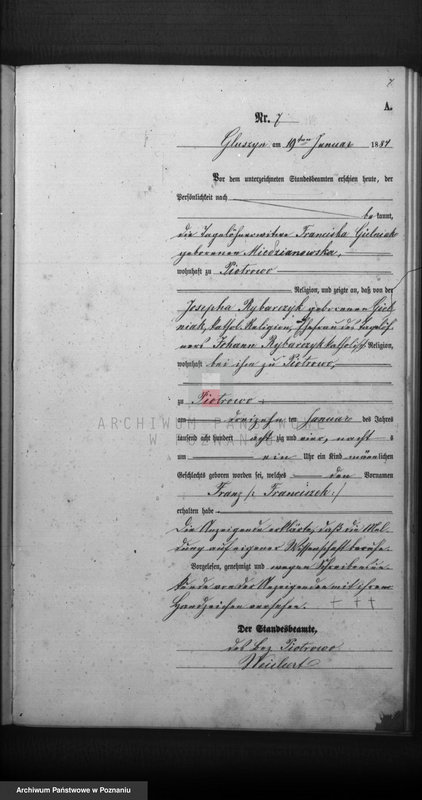 7
A.
Nr. 7
Gluszyn am 19ten Januar 1884
Vor dem unterzeichneten Standesbeamten erschien heute, der
Persönlichkeit nach
be kannt,
die Tagelöhnerwittwe Franciska Gielniak
geborenen Miedzianowska,
wohnhaft zu Piotrowo
Religion, und zeigte an, daß von der
Josepha Rybarczyk geborenen Giel
niak, kathol. Religion, Ehefrau des Tagelöh
ners Johann Rybarczyk katholisch Religion,
wohnhaft bei ihm zu Piotrowo,
zu Piotrowo
ARCHIWUM PAŃSTWOWE
W POZNANIU
am dreizehn ten Januar des Jahres
tausend acht hundert acht zig und vier, nacht s
um ein Uhr ein Kind männlichen
Geschlechts geboren worden sei, welches den Vornamen
Franz /: Franciszek :/
erhalten habe.
Die Anzeigende erklärte, daß die Mel-
dung auf eigener Wissenschaft beruhe.
Vorgelesen, genehmigt und wegen Schreibensun-
kunde von der Anzeigenden mit ihrem
Handzeichen versehen. † † †
Der Standesbeamte,
des Bez. Piotrowo
Weickert
Archiwum Państwowe w Poznaniu